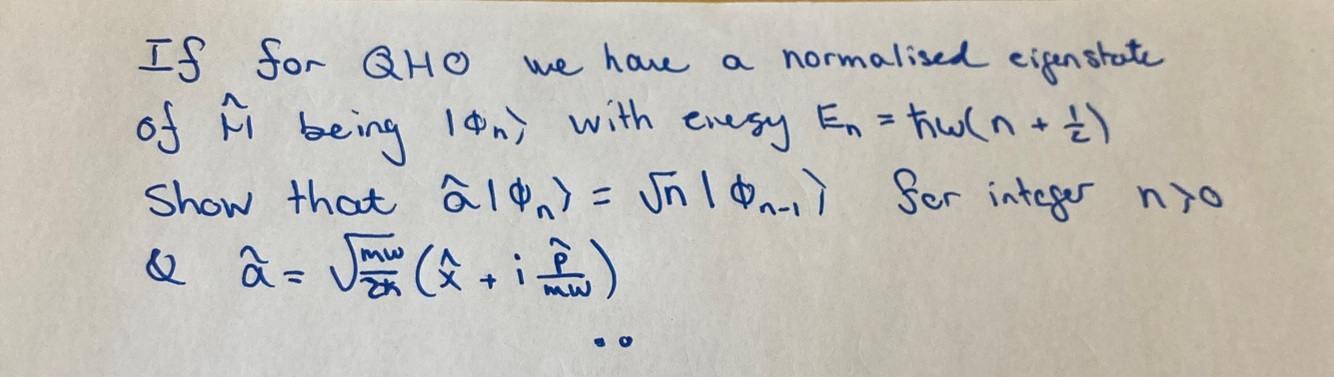 If for QHO we have a normalised eigenstate
of Ĥ being |ϕₙ⟩ with enegy Eₙ = ħω(n + ½)
Show that â|ϕₙ⟩ = √n |ϕₙ₋₁⟩ for integer n>0
& â = √(mω/2ħ) (x̂ + i p̂/mω)